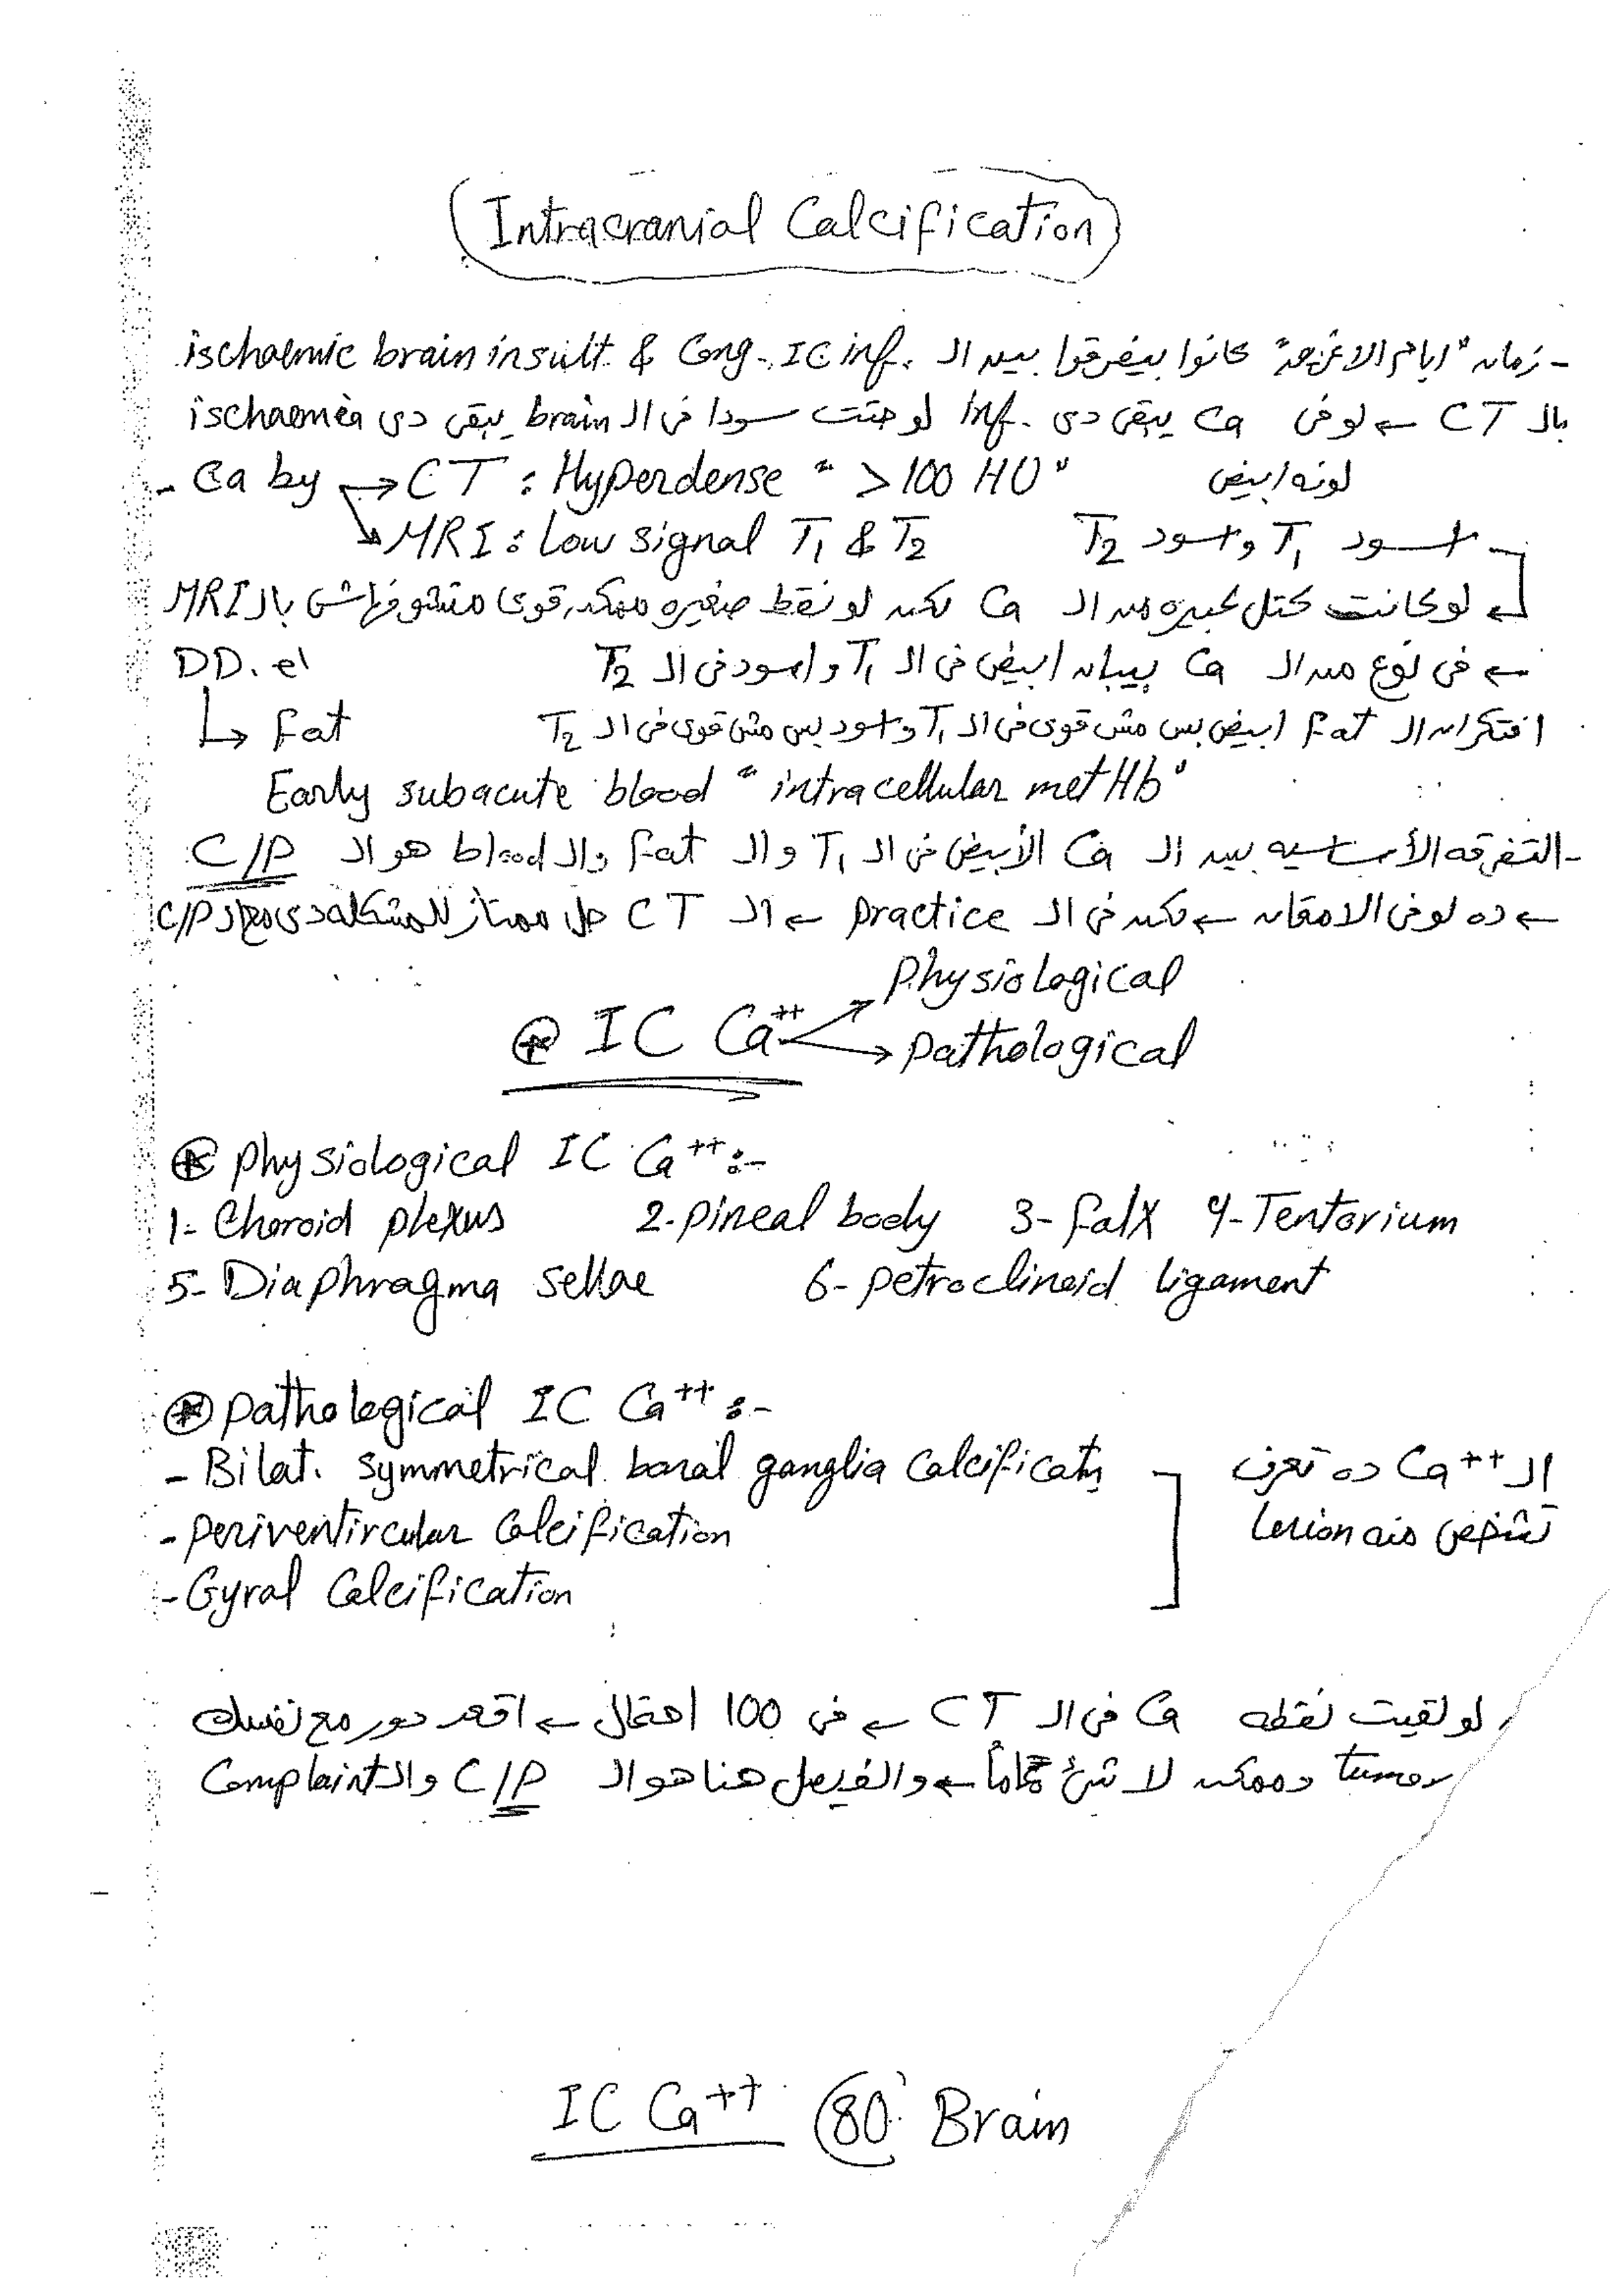 Intracranial Calcification
- زمان "ايام الاغريق" كانوا بيفرقوا بين ال ischaemic brain insult & Cong. IC inf.
بال CT ← لو فى Ca يبقى دى inf. لو حتت سودا فى ال brain يبقى دى ischaemia
- Ca by → CT : Hyperdense " >100 HU" لونه ابيض
↘ MRI : Low signal T1 & T2 اسود T1 واسود T2
← لو كانت كتل كبيره من ال Ca لكن لو نقط صغيره ممكن قوى متشوفهاش بال MRI
← فى نوع من ال Ca بيبان ابيض فى ال T1 واسود فى ال T2 DD. el
افتكر ان ال fat ابيض بس مش قوى فى ال T1 واسود بس مش قوى فى ال T2 ↳ fat
Early subacute blood "intracellular metHb"
- التفرقه الأساسيه بين ال Ca الأبيض فى ال T1 وال fat وال blood هو ال C/P
← ده لو فى الامتحان ← لكن فى ال practice ← ال CT حل ممتاز للمشكله دى مع ال C/P
Physiological
⊛ IC Ca++
Pathological
⊛ Physiological IC Ca++ :-
1- Choroid plexus 2- pineal body 3- falx 4- Tentorium
5- Diaphragma sellae 6- petroclinoid ligament
⊛ pathological IC Ca++ :-
- Bilat. symmetrical basal ganglia calcificatn ال Ca++ ده تعرف
- periventircular calcification تشخص منه lesion
- Gyral Calcification
لو لقيت نقطه Ca فى ال CT ← فى 100 احتمال ← اقعد دور مع نفسك
tumor وممكن لا شئ تماماً ← والفيصل هنا هو ال C/P وال Complaint
IC Ca++ 80 Brain